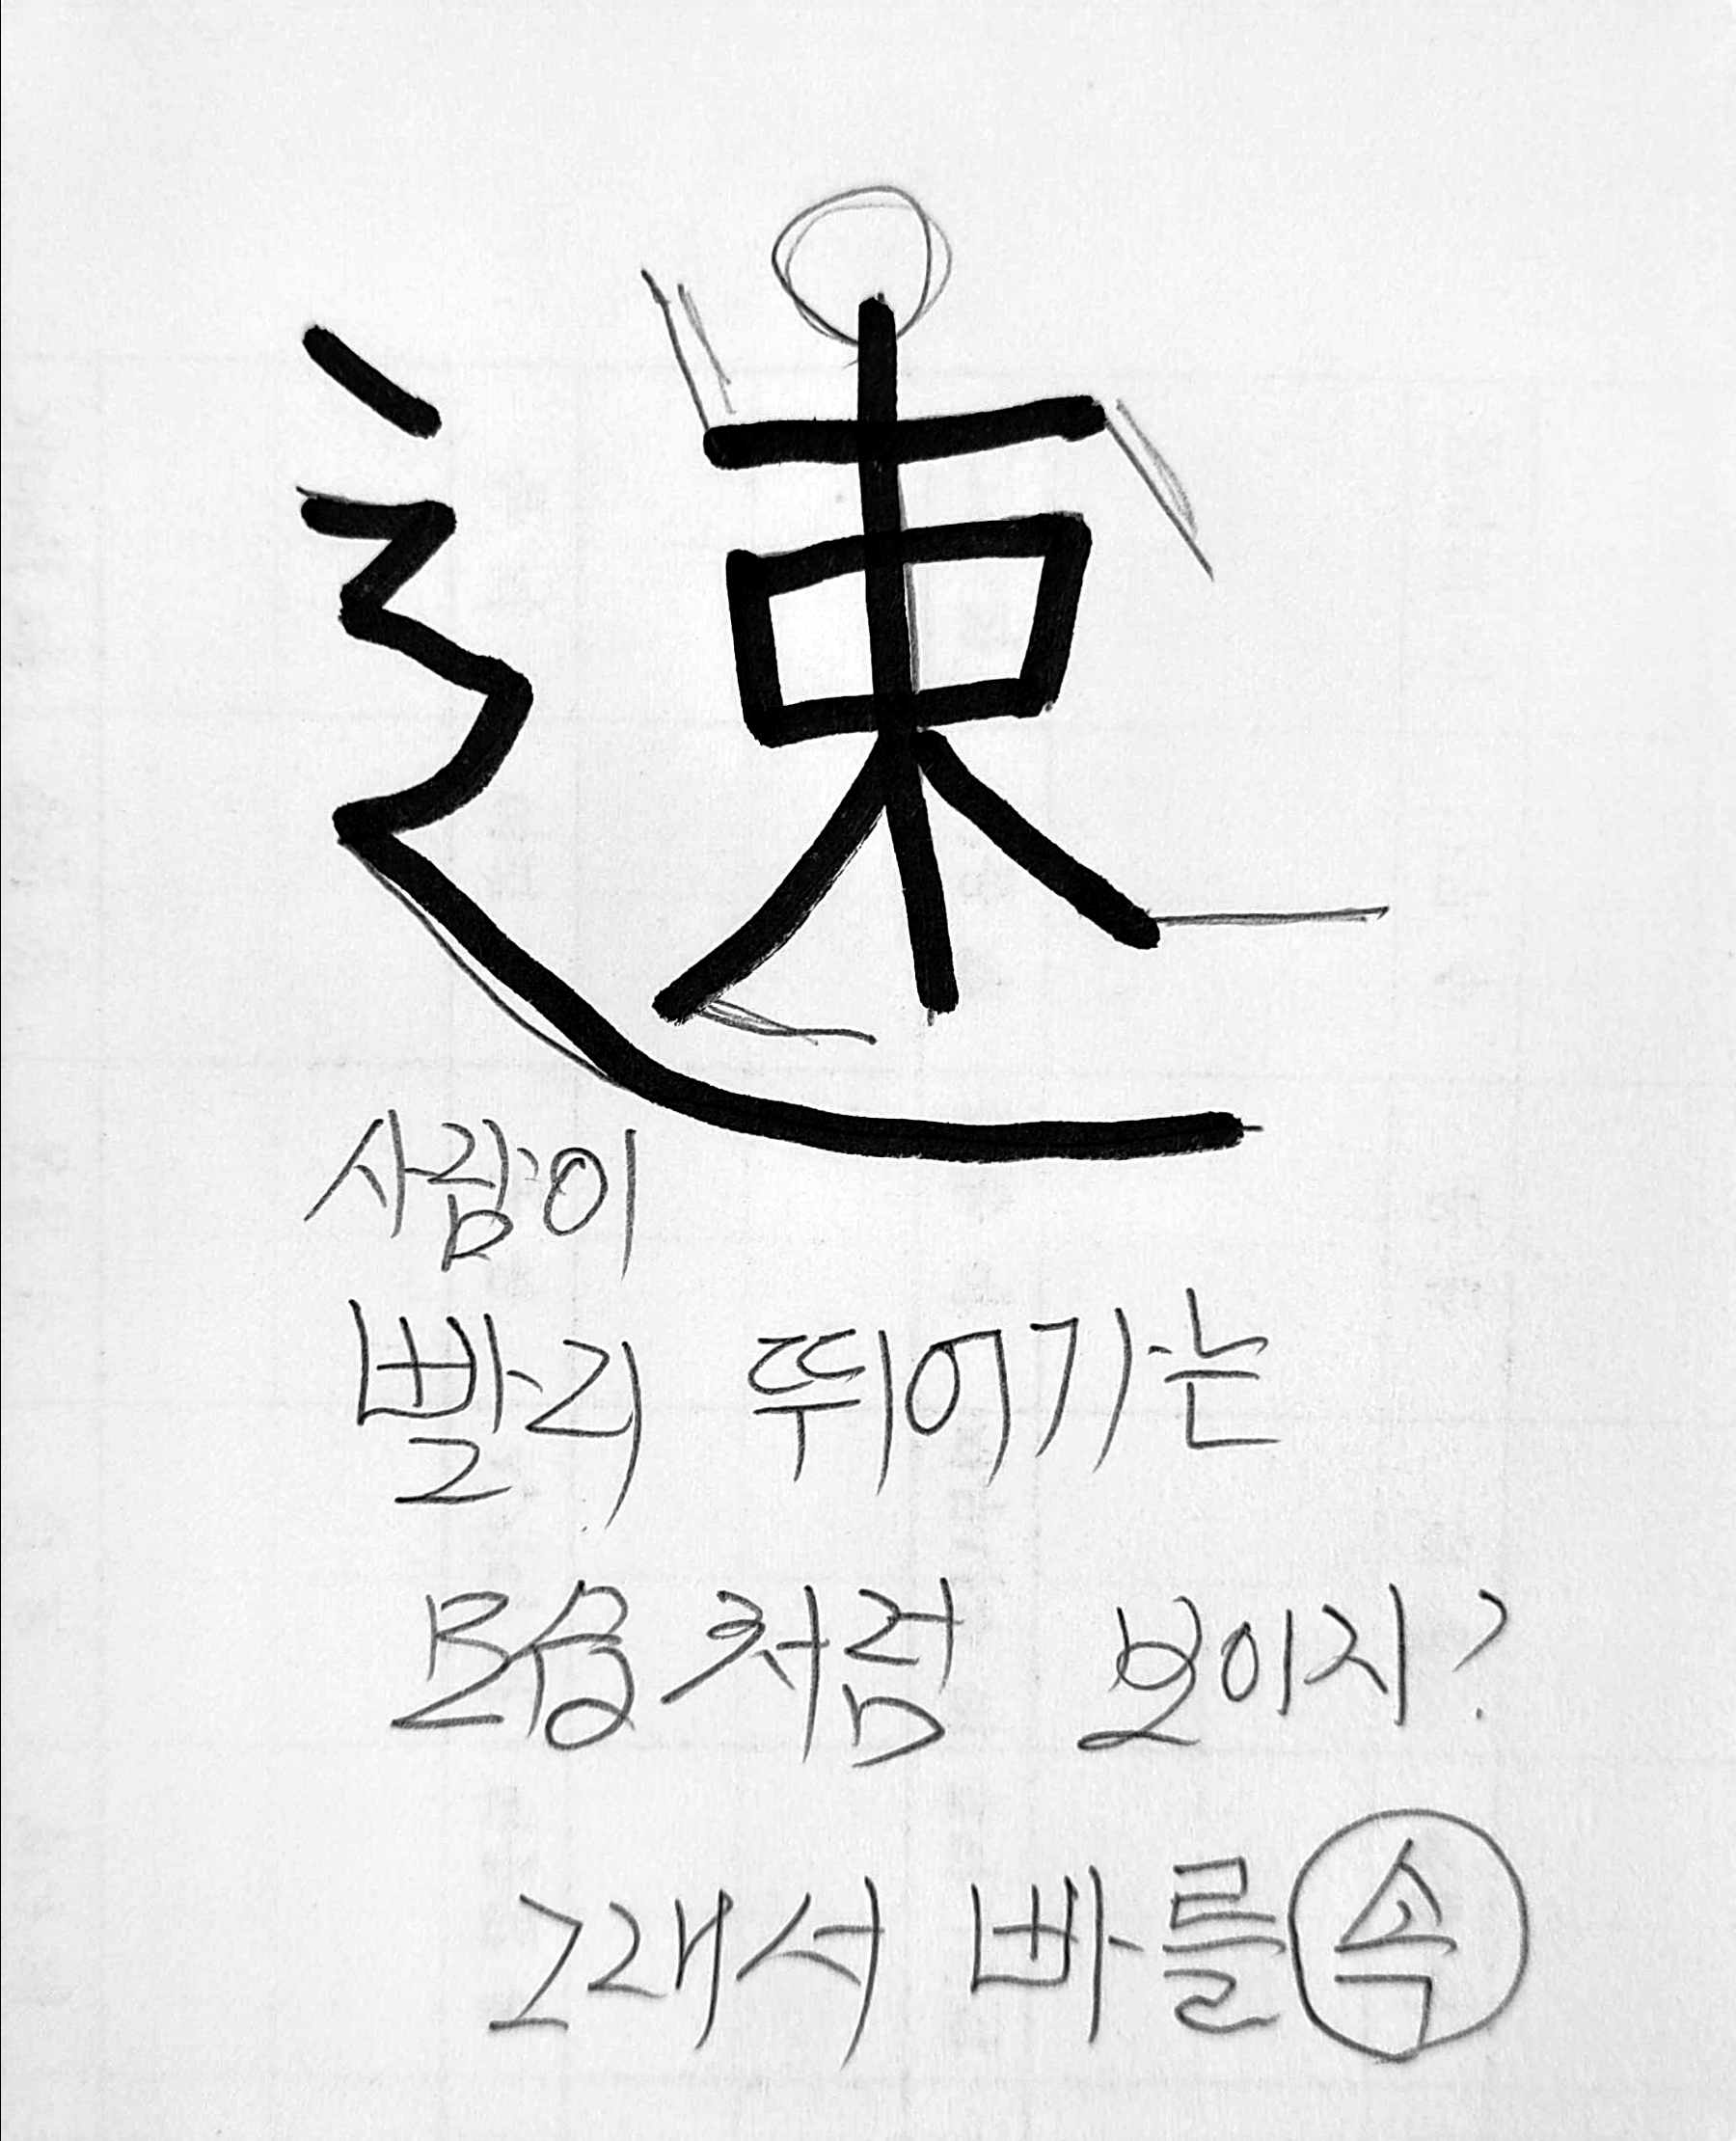 速
사람이
빨리 뛰어가는
모습처럼 보이지?
그래서 빠를 속